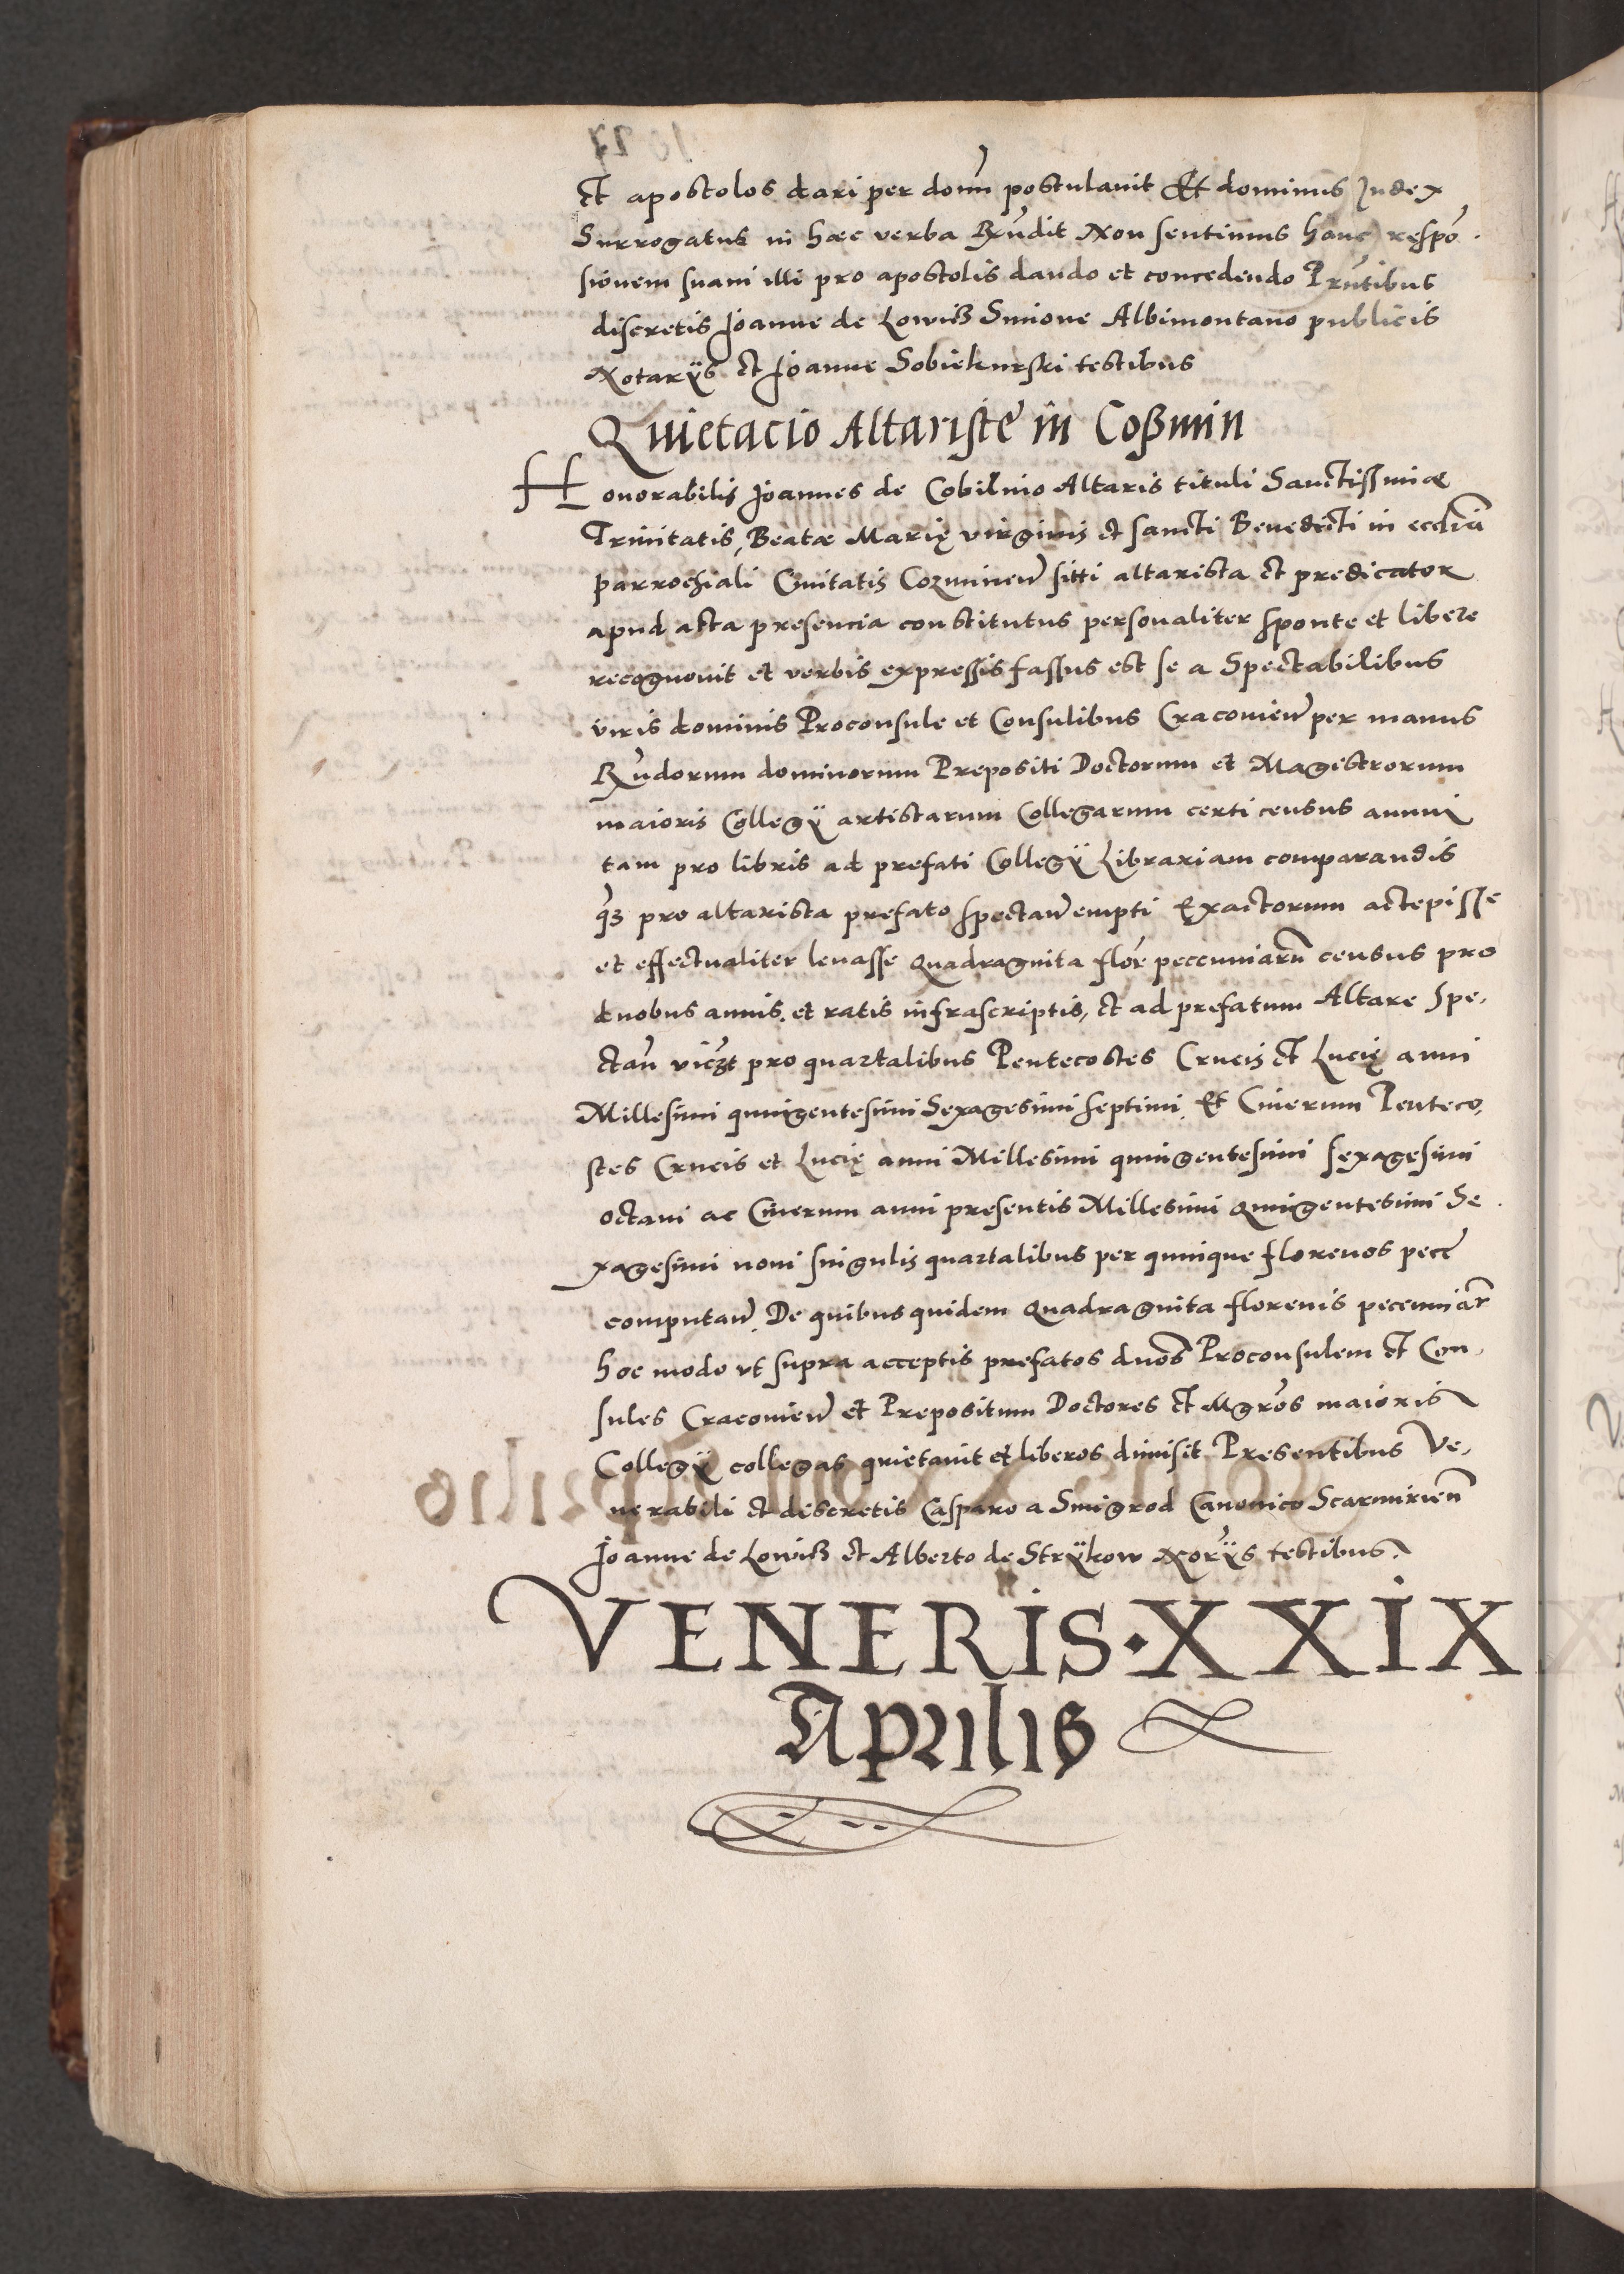 et apostolos dari per doнn postulavit Et dominus Judex
Surrogatus in hæc verba Rn̄dit Non sentimus hanc respō
sionem suam illi pro apostolis dando et concedendo Prn̄tibus
discretis Joanne de Lowiß Simone Albimontano publicis
Notariÿs et Joanne Sobiekurski testibus
Quietacio Altariste in Coßmin
Honorabilis Joannes de Cobilnio Altaris tituli Sanctissimæ
Trinitatis, Beatæ Marię virginis et sancti Benedicti in eccl̄ia
parrochiali Civitatis Cozminen̄ siti altarista et predicator
apud acta presencia constitutus personaliter sponte et libere
recognovit et verbis expressis fassus est se a Spectabilibus
viris dominis Proconsule et Consulibus Cracovien̄ per manus
Rn̄dorum dominorum Prepositi Doctorum et Magistrorum
maioris Collegÿ artistarum Collegarum certi census annui
tam pro libris ad prefati Collegÿ Librariam comparandis
q̄ȝ pro altarista prefato spectan̄ empti Exactorum accepisse
et effectualiter levasse quadraginta flor̄ peccuniarū census pro
duobus annis, et ratis infrascriptis, et ad prefatum Altare spe,
ctan̄ vicȝt pro quartalibus Pentecostes Crucis et Lucię anni
Millesimi quingentesimi Sexagesimi septimi, Et Cinerum Penteco,
stes Crucis et Lucię anni Millesimi quingentesimi sexagesimi
octavi ac Cinerum anni presentis Millesimi quingentesimi Se
xagesimi noni singulis quartalibus per quinque florenos pecc̄
computan̄. De quibus quidem quadraginta florenis peccuniar̄
hoc modo ut supra acceptis prefatos dnos̄ Proconsulem et Con,
sules Cracovien̄ et Prepositum Doctores et Mgr̄os maioris
Collegÿ collegas quietavit et liberos dimisit Presentibus Ve,
nerabili et discretis Casparo a Smigrod Canonico Scarmirien̄
Joanne de Lowiß et Alberto de Strÿkow Nor̄ÿs testibus.
VENERIS·XXIX
Aprilis